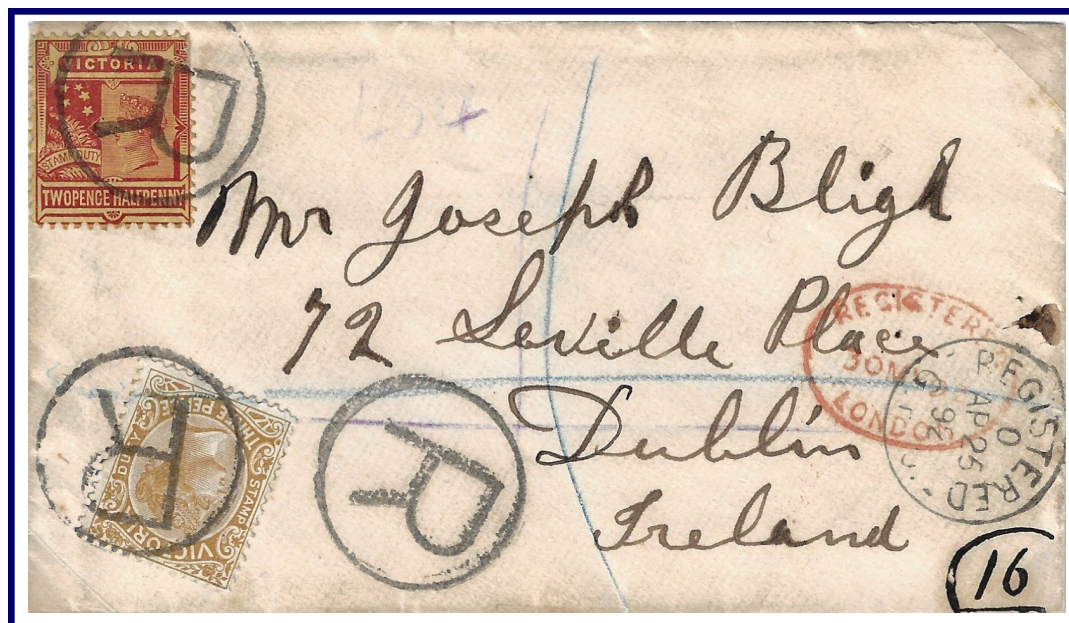 VICTORIA
STAMP DUTY
TWOPENCE HALFPENNY
R
Mr Joseph Bligh
72 Seville Place
Dublin
Ireland
REGISTERED
30 M
LONDON
REGISTERED
O
AP 25
92
R
STAMP DUTY
VICTORIA
R
16